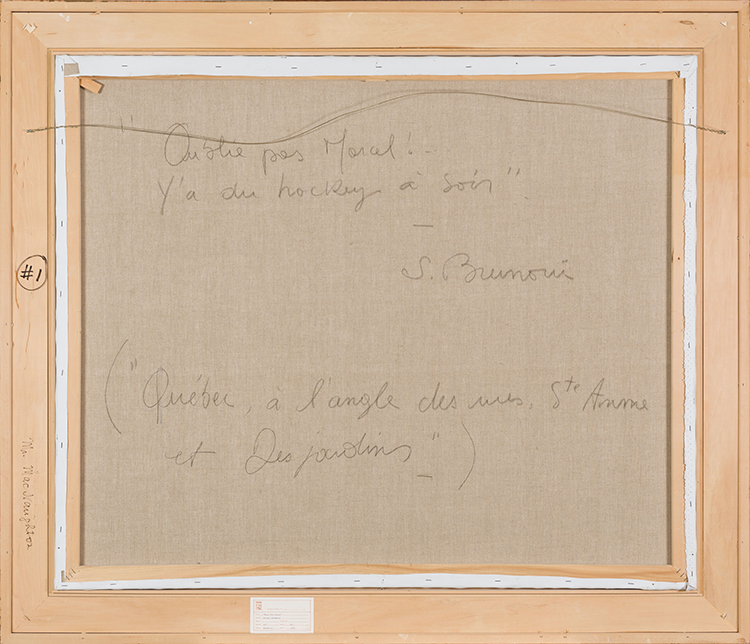 " Oublie pas Marcel!..
Y'a du hockey à soir"
—
S. Brunoni
("Québec, à l'angle des rues, Ste Anne
et Des jardins")
#1
Mr. MacNaughton